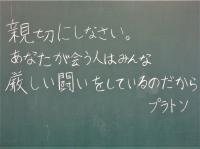 親切にしなさい。
あなたが会う人はみんな
厳しい闘いをしているのだから
プラトン